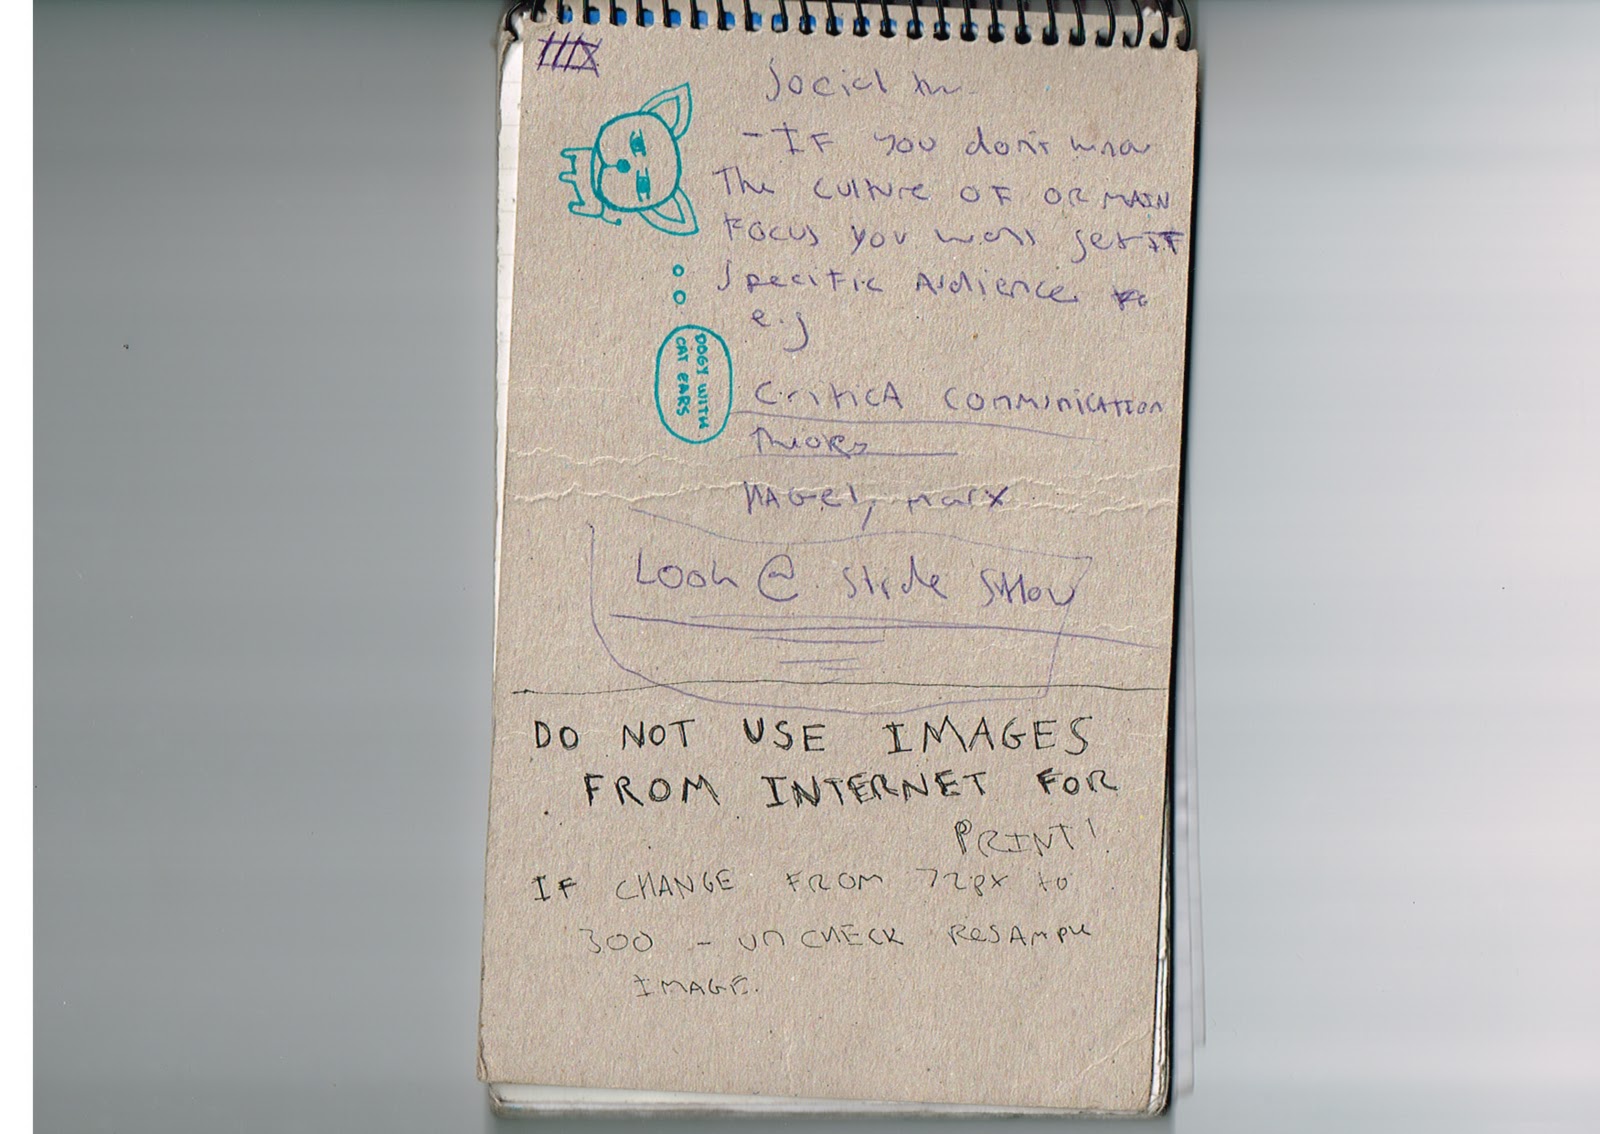 Social
- IF you don't know
The culture OF OR MAIN
Focus you wont get IT
Specific Audience
e.g
CriticA Communication
Theory
HAGel, marx
Look @ Slide SHow
DOGY WITH
CAT EARS
DO NOT USE IMAGES
FROM INTERNET FOR
PRINT!
IF CHANGE FROM 72px to
300 - UNCHECK RESAMPLE
IMAGE.